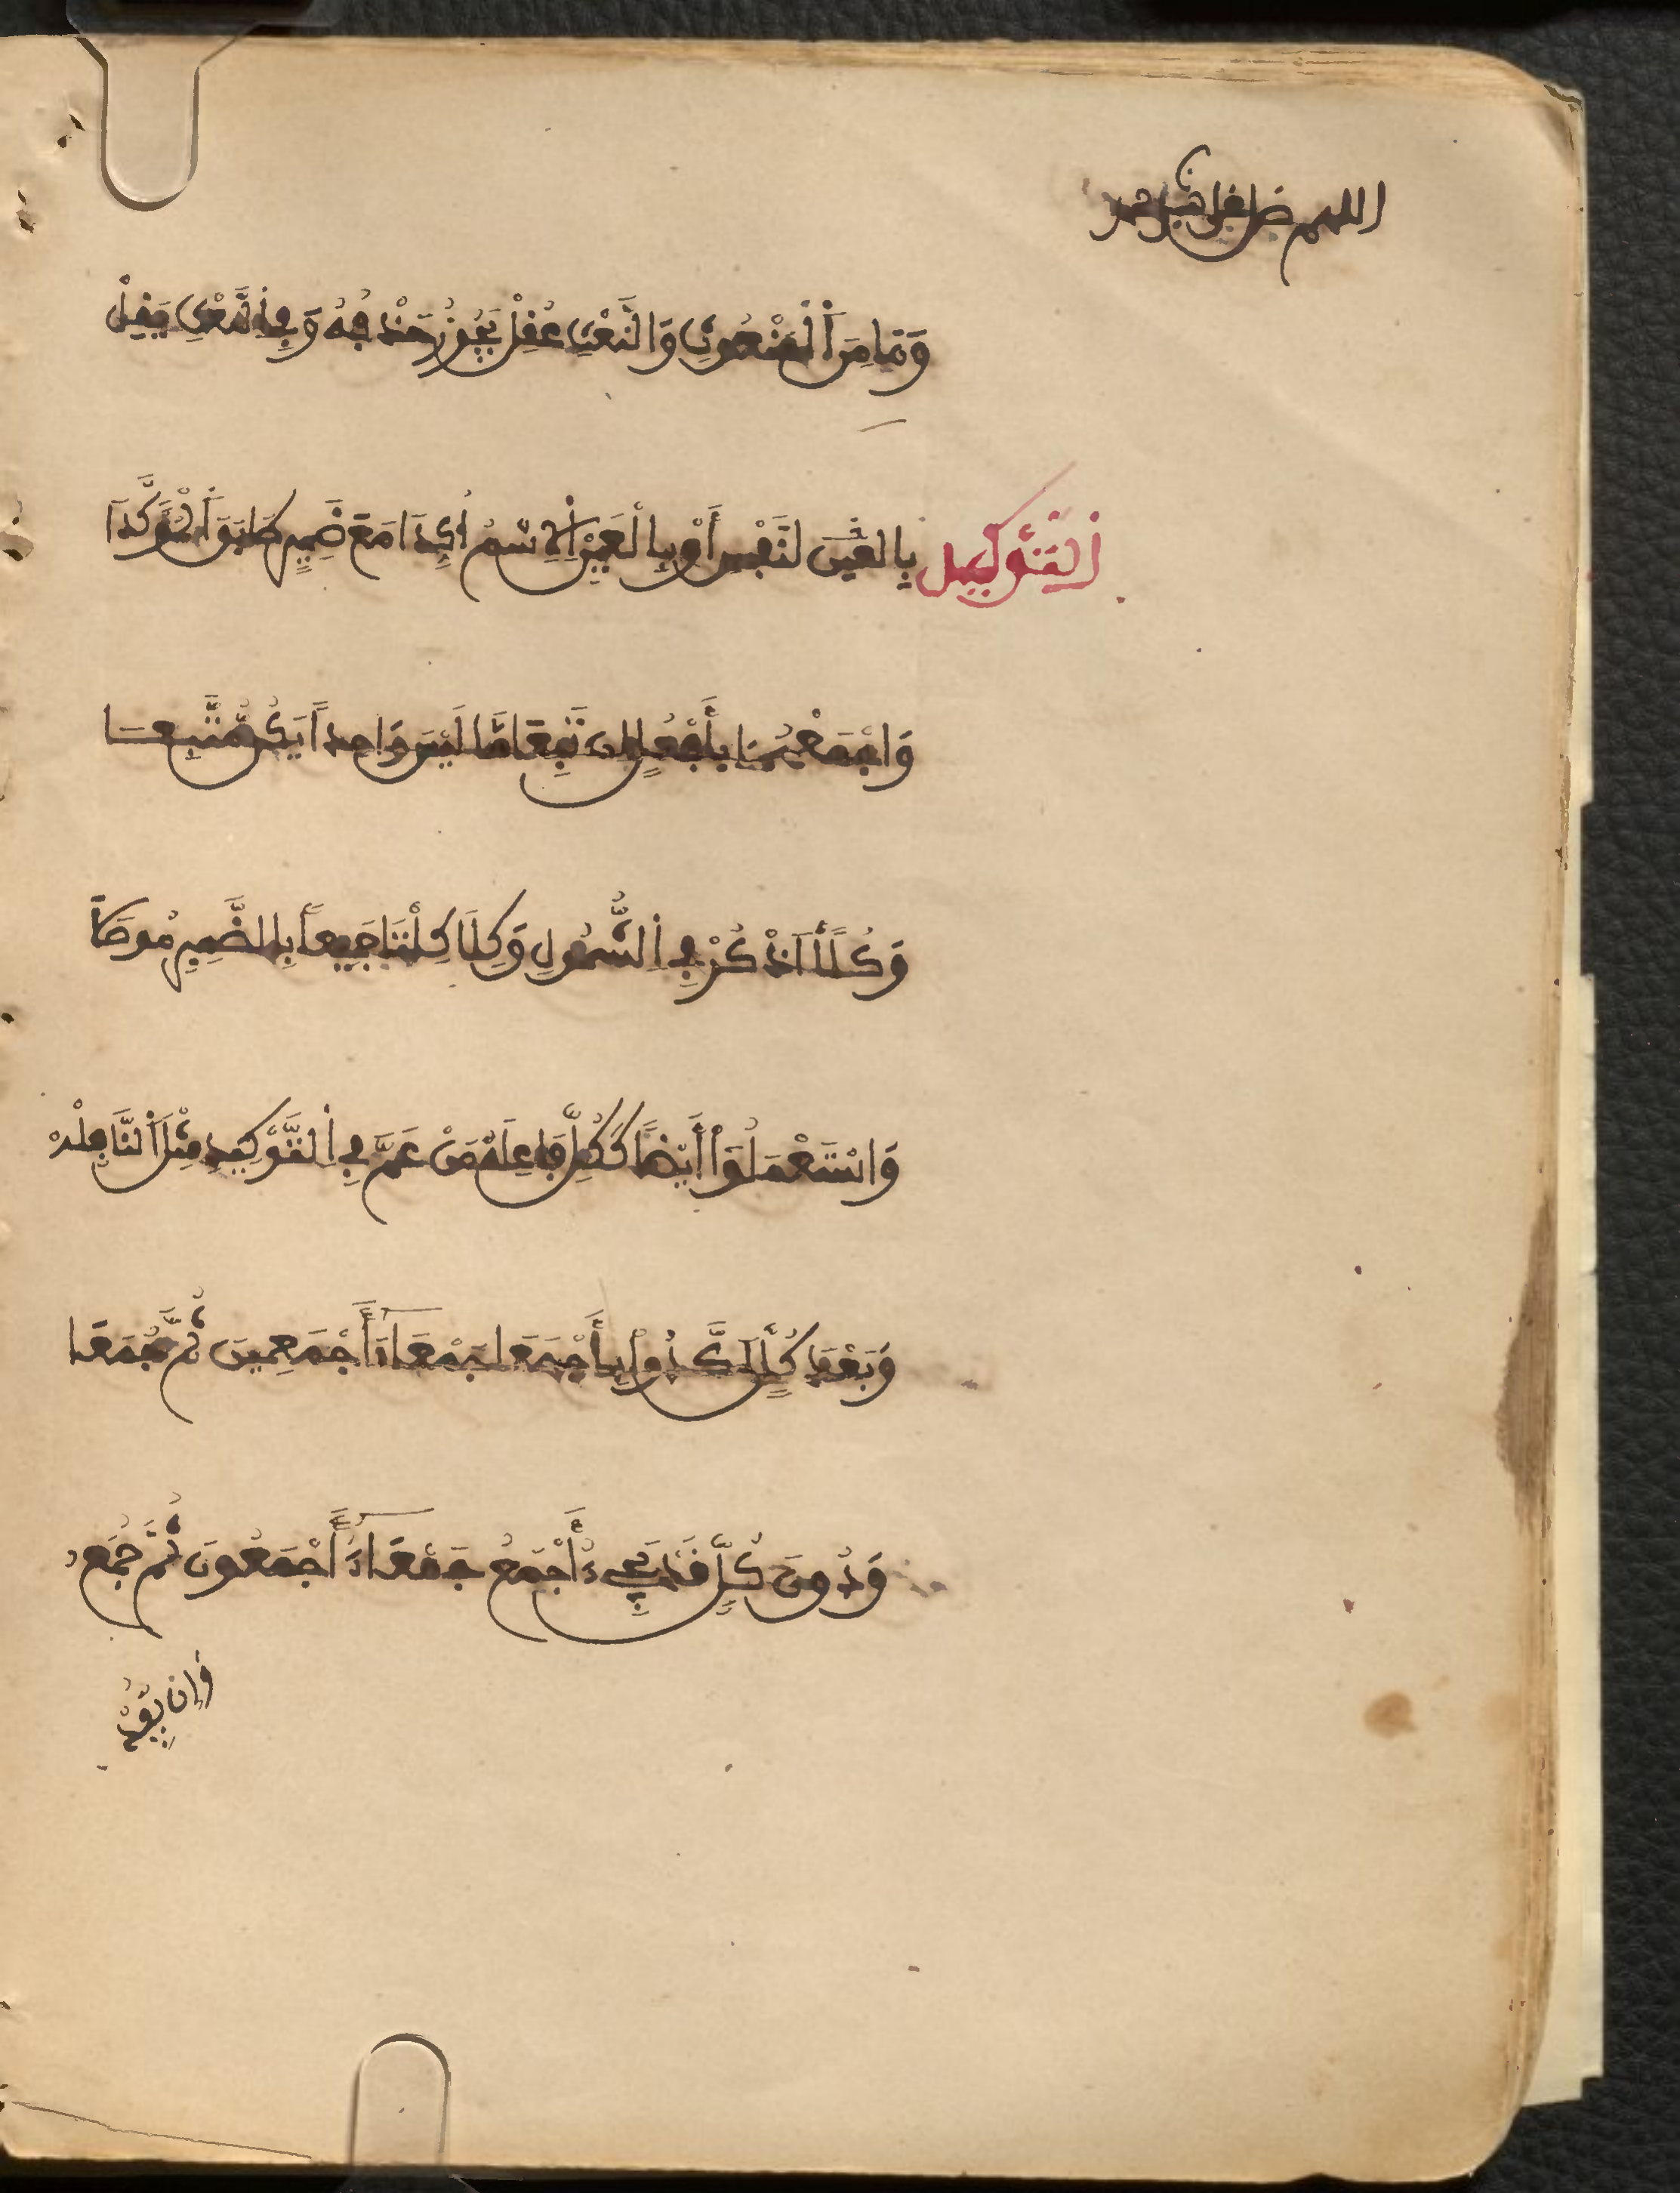 اللهم صل على نبيك محمد
وَمَا مِنَ ٱلْمَنْعُوتِ وَالنَّعْتِ عُقِلْ يَجُوزُ حَذْفُهُ وَفِي ٱلنَّعْتِ يَقِلْ
ٱلتَّوْكِيد بِالنَّفْسِ أَوْ بِالْعَيْنِ ٱلِاسْمُ أُكِّدَا مَعَ ضَمِيرٍ طَابَقَ ٱلْمُؤَكَّدَا
وَاجْمَعْهُمَا بِأَفْعُلٍ إِن تَبِعَا مَا لَيْسَ وَاحِداً تَكُن مُّتَّبِعَا
وَكُلّاً ٱذْكُرْ فِي ٱلشُّمُولِ وَكِلَا كِلْتَا جَمِيعاً بِالضَّمِيرِ مُوصَلاً
وَاسْتَعْمَلُوا أَيْضاً كَكُلٍّ فَاعِلَهْ مِنْ عَمَّ فِي ٱلتَّوْكِيدِ مِثْلَ ٱلنَّافِلَهْ
وَبَعْدَ كُلٍّ أَكَّدُوا بِأَجْمَعَا جَمْعَاءَ أَجْمَعِينَ ثُمَّ جُمَعَا
وَدُونَ كُلٍّ قَدْ يَجِيءُ أَجْمَعُ جَمْعَاءُ أَجْمَعُونَ ثُمَّ جُمَعُ
وَإِن يُّفِدْ